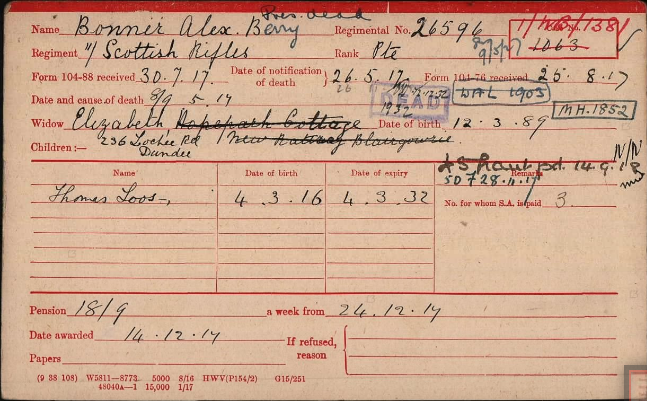 Pres. dead
Name Bonner Alex. Berry Regimental No. 26596
Regiment 11/ Scottish Rifles Rank Pte 9/5/17 1063
Form 104-88 received 30.7.17. Date of notification of death 26.5.17 Form 104-76 received 25.8.17
Date and cause of death 8/9 5.17 DEAD WAL 1903
MH.1852
Widow Elizabeth, Hopepark Cottage Date of birth 12.3.89
Children:— 236 Lochee Rd Dundee New Railway Blairgowrie
£5 Grant pd. 14.9.
SD 728.11.17
Name Date of birth Date of expiry Remarks
Thomas Loos 4.3.16 4.3.32 No. for whom S.A. is paid 3
Pension 18/9 a week from 24.12.17
Date awarded 14.12.17 If refused, reason
Papers
(9 38 108) W5811—8773 5000 8/16 HWV(P154/2) G15/251
48040A—1 15,000 1/17